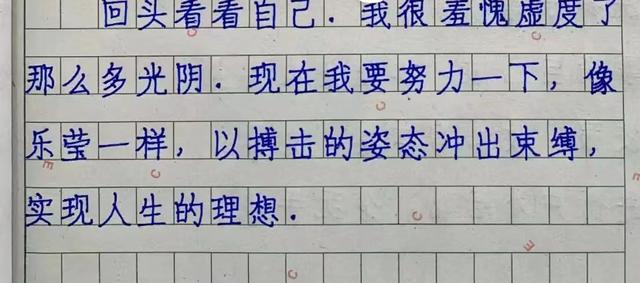 回头看看自己.我很羞愧虚度了
那么多光阴.现在我要努力一下,像
乐莹一样,以搏击的姿态冲出束缚,
实现人生的理想.